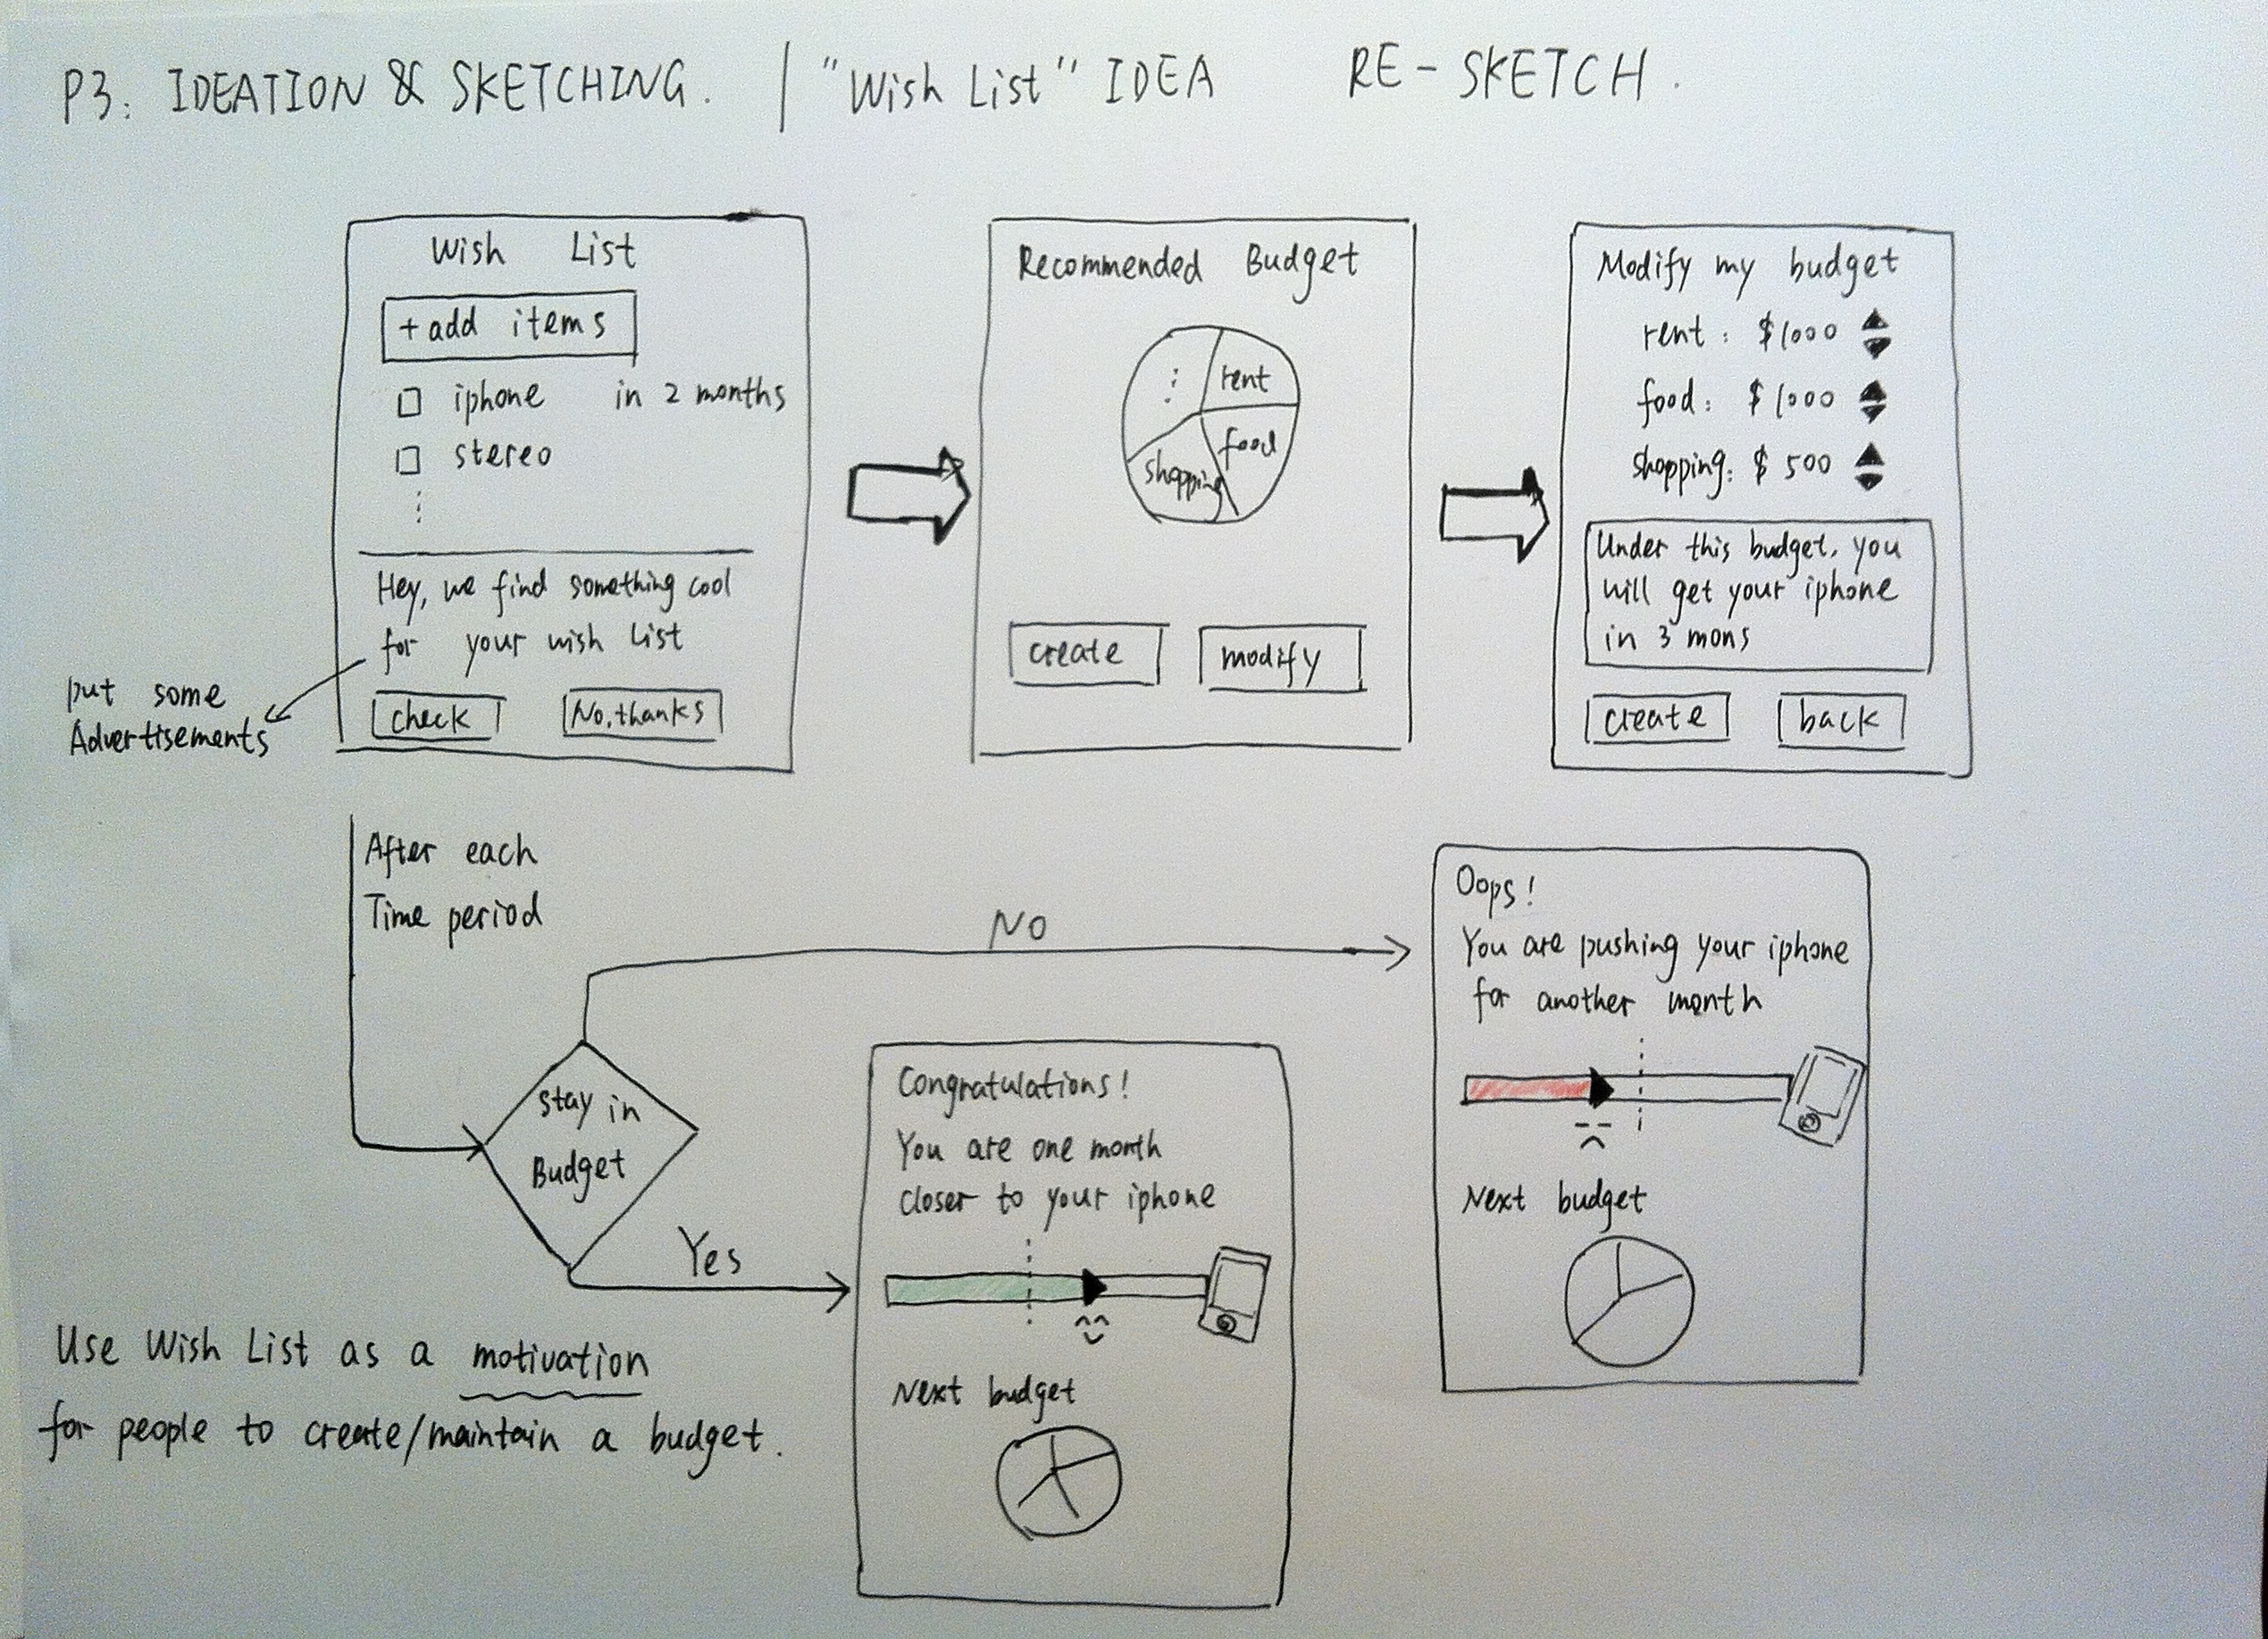 P3. IDEATION & SKETCHING. | "Wish List" IDEA RE-SKETCH.
Wish List
+ add items
iphone in 2 months
stereo
Hey, we find something cool
for your wish List
check No, thanks
put some
Advertisements
Recommended Budget
rent
food
shopping
create modify
Modify my budget
rent: $1000
food: $1000
shopping: $500
Under this budget, you
will get your iphone
in 3 mons
create back
After each
Time period
stay in
Budget
NO
Yes
Oops!
You are pushing your iphone
for another month
Next budget
Congratulations!
You are one month
closer to your iphone
Next budget
Use Wish List as a motivation
for people to create/maintain a budget.